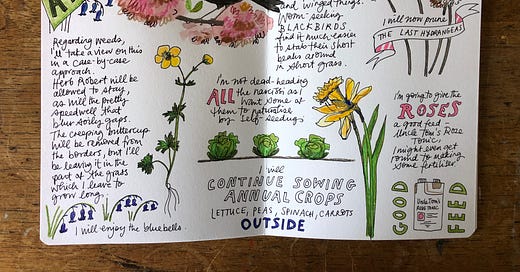 Regarding weeds,
I'll take a view on this
in a case-by-case
approach.
Herb Robert will be
allowed to stay,
as will the pretty
speedwell that
blur soily gaps.
The creeping buttercup
will be removed from
the borders, but I'll
be leaving it in the
part of the grass
which I leave to
grow long.
I will enjoy the bluebells.
and winged things.
Worm seeking
BLACKBIRDS
find it much easier
to stab their short
beaks around
in short grass.
I'm not dead-heading
ALL the narcissi as I
want some of
them to naturalise
by self-seeding.
I will
CONTINUE SOWING
ANNUAL CROPS
LETTUCE, PEAS, SPINACH, CARROTS
OUTSIDE
I will now prune
THE LAST HYDRANGEAS
I'm going to give the
ROSES
a good feed –
Uncle Tom's Rose
Tonic.
I might even get
round to making
some fertiliser.
GOOD
Uncle Tom's
ROSE TONIC
FEED